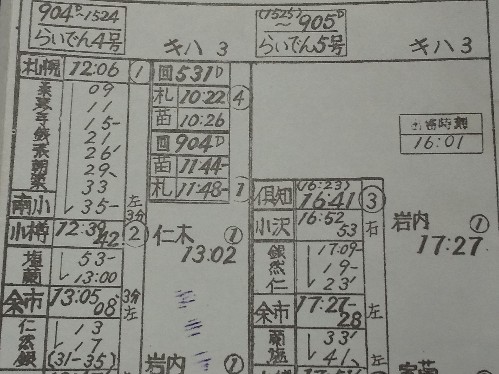 904D~1524
らいでん4号
キハ 3
札幌 12:06 ①
桑 09
琴 11
手 15-
銭 21
張 26'
朝 29
粟 33
南小 35-
左 3分
小樽 12:39 42 ②
塩 53-
蘭 13:00
余市 13:05 08' 3分 左
仁 13
然 17
銀 (31-35)
回531D
札 10:22 ④
苗 10:26
回904D
苗 11:44-
札 11:48- ①
仁木 ①
13:02
岩内 ①
(1525)~905D
らいでん5号
キハ 3
出場時刻
16:01
倶知 (16:23) 16:41 ③
小沢 16:52 53 右
銀 17:09-
然 19-
仁 23'
余市 17:27- 28 左
蘭 33'
塩 41、 左
岩内 ①
17:27
①